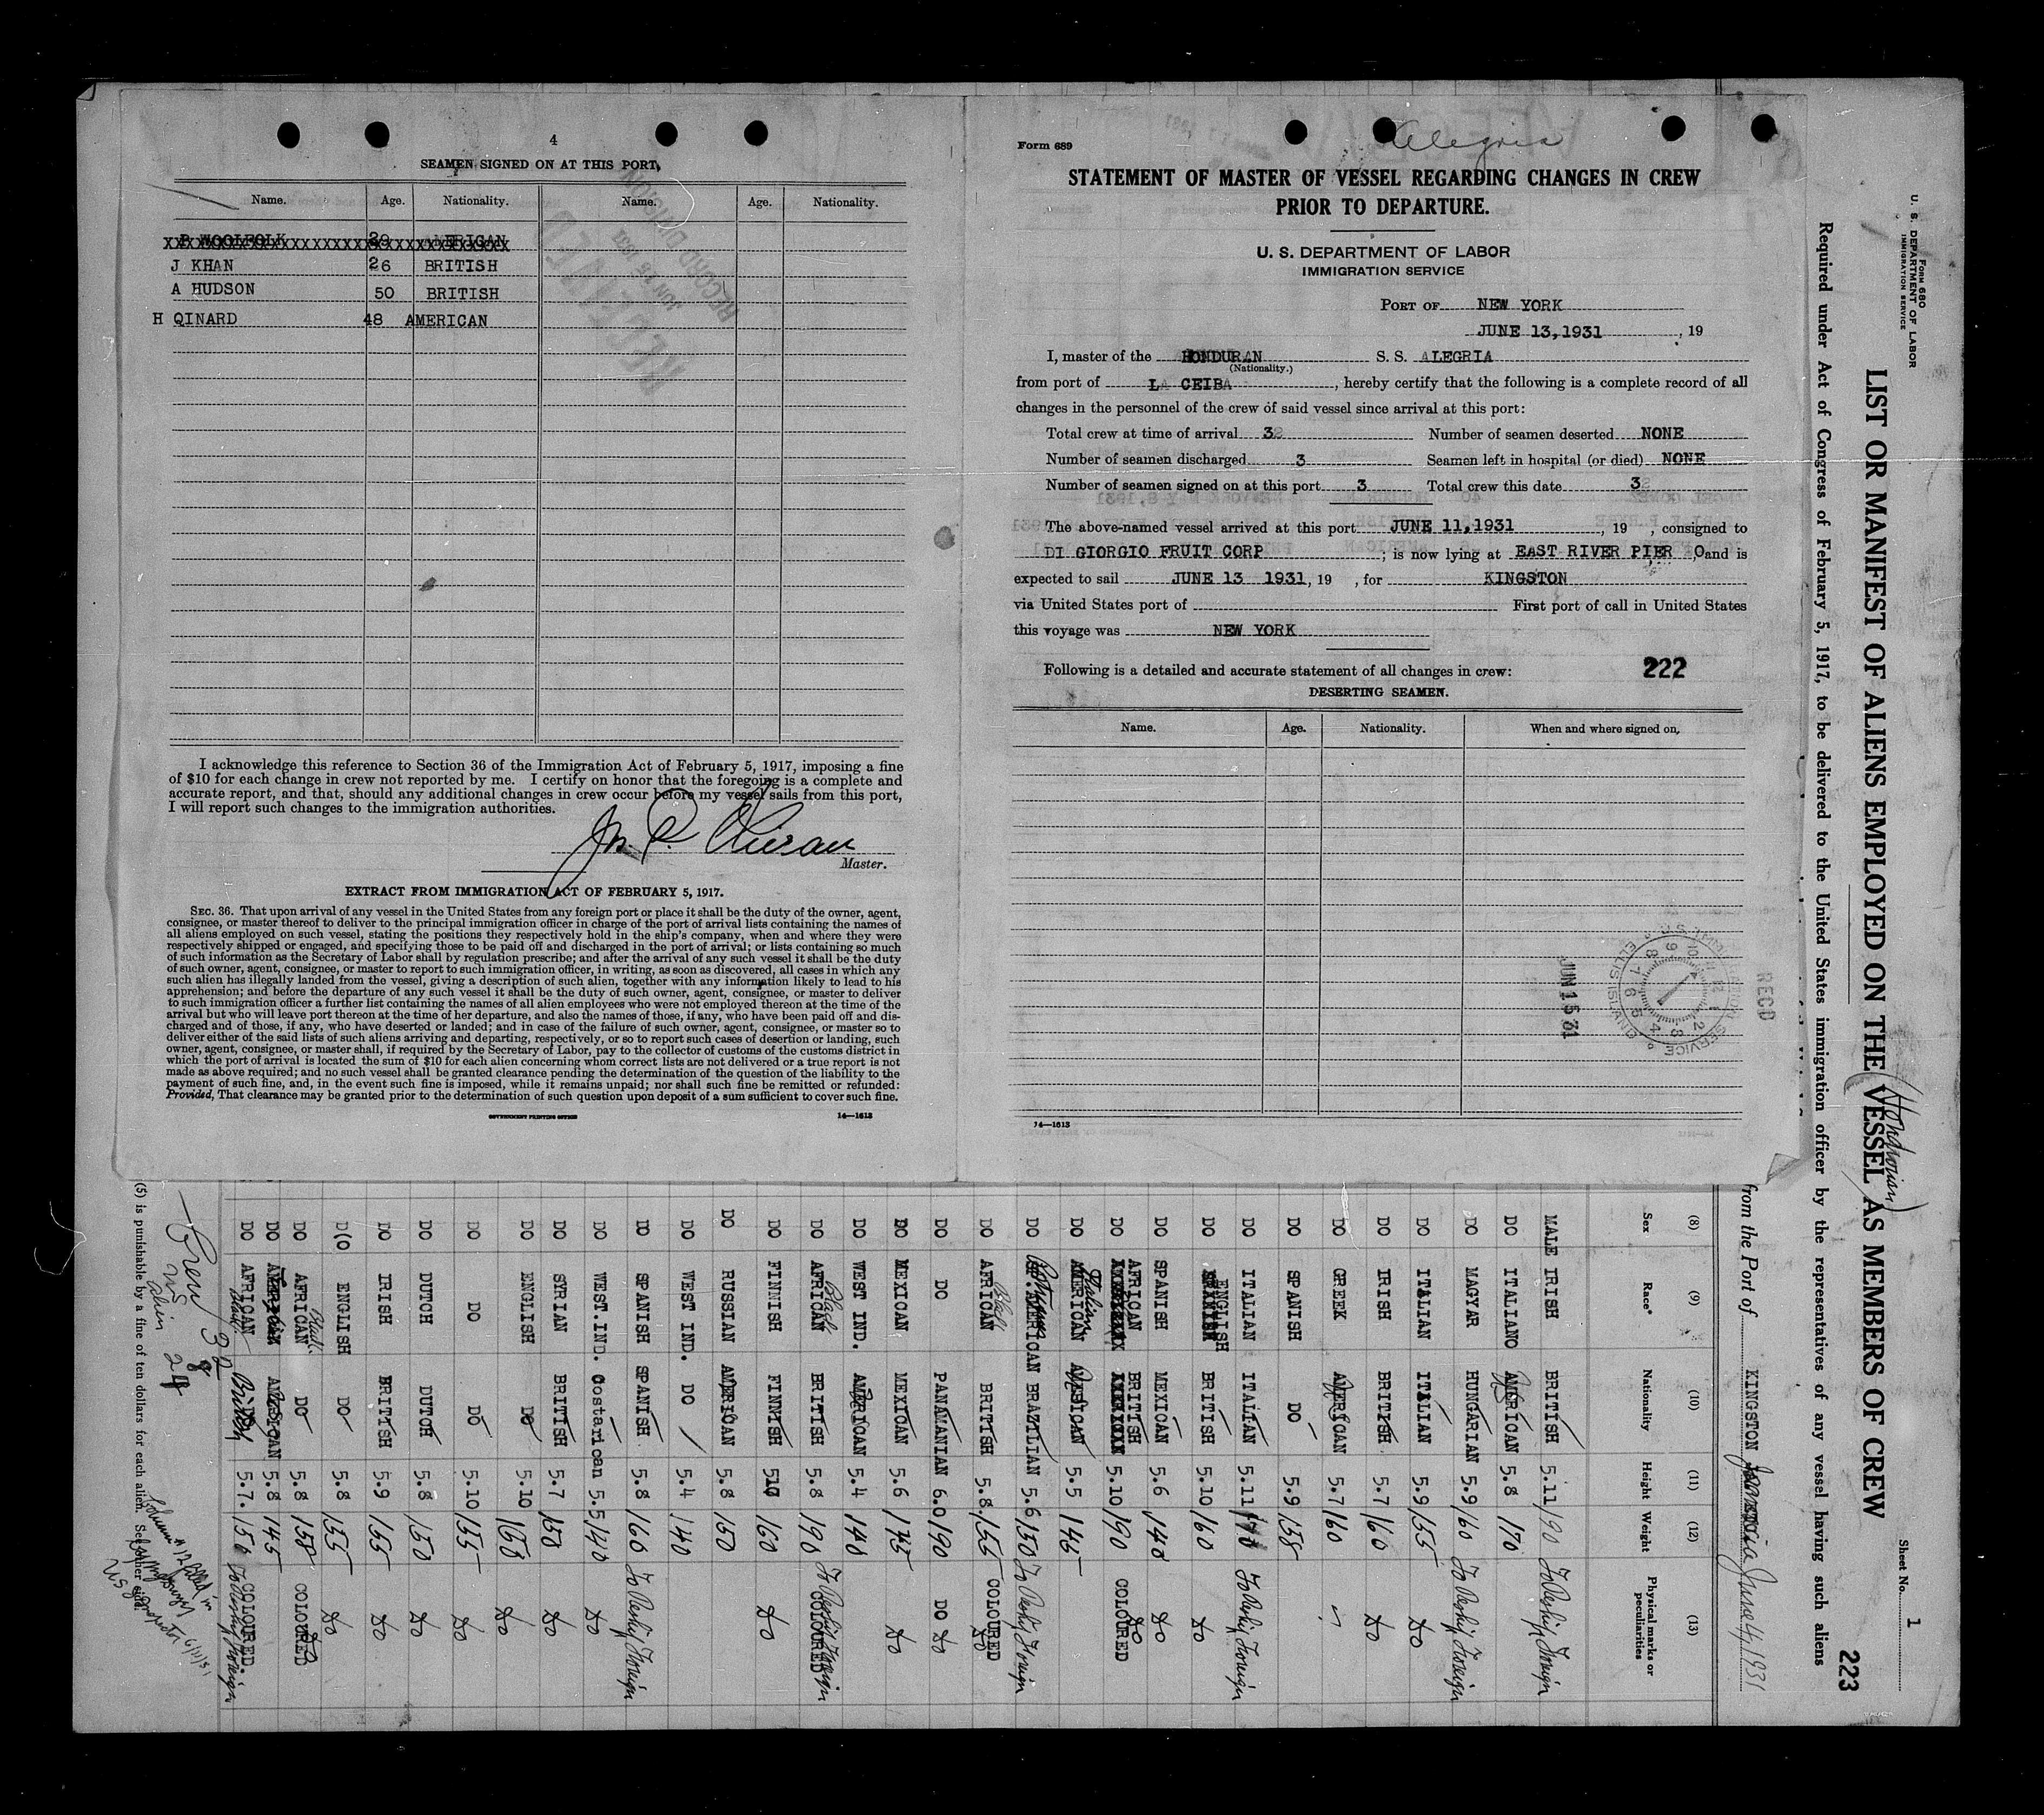 4
SEAMEN SIGNED ON AT THIS PORT,
Name. Age. Nationality. Name. Age. Nationality.
P WOOLFOLK 29 AMERICAN
J KHAN 26 BRITISH
A HUDSON 50 BRITISH
H QINARD 48 AMERICAN
I acknowledge this reference to Section 36 of the Immigration Act of February 5, 1917, imposing a fine
of $10 for each change in crew not reported by me. I certify on honor that the foregoing is a complete and
accurate report, and that, should any additional changes in crew occur before my vessel sails from this port,
I will report such changes to the immigration authorities.
Master.
EXTRACT FROM IMMIGRATION ACT OF FEBRUARY 5, 1917.
SEC. 36. That upon arrival of any vessel in the United States from any foreign port or place it shall be the duty of the owner, agent,
consignee, or master thereof to deliver to the principal immigration officer in charge of the port of arrival lists containing the names of
all aliens employed on such vessel, stating the positions they respectively hold in the ship's company, when and where they were
respectively shipped or engaged, and specifying those to be paid off and discharged in the port of arrival; or lists containing so much
of such information as the Secretary of Labor shall by regulation prescribe; and after the arrival of any such vessel it shall be the duty
of such owner, agent, consignee, or master to report to such immigration officer, in writing, as soon as discovered, all cases in which any
such alien has illegally landed from the vessel, giving a description of such alien, together with any information likely to lead to his
apprehension; and before the departure of any such vessel it shall be the duty of such owner, agent, consignee, or master to deliver
to such immigration officer a further list containing the names of all alien employees who were not employed thereon at the time of the
arrival but who will leave port thereon at the time of her departure, and also the names of those, if any, who have been paid off and dis-
charged and of those, if any, who have deserted or landed; and in case of the failure of such owner, agent, consignee, or master so to
deliver either of the said lists of such aliens arriving and departing, respectively, or so to report such cases of desertion or landing, such
owner, agent, consignee, or master shall, if required by the Secretary of Labor, pay to the collector of customs of the customs district in
which the port of arrival is located the sum of $10 for each alien concerning whom correct lists are not delivered or a true report is not
made as above required; and no such vessel shall be granted clearance pending the determination of the question of the liability to the
payment of such fine, and, in the event such fine is imposed, while it remains unpaid; nor shall such fine be remitted or refunded:
Provided, That clearance may be granted prior to the determination of such question upon deposit of a sum sufficient to cover such fine.
GOVERNMENT PRINTING OFFICE 14—1613
Form 689
Alegria
STATEMENT OF MASTER OF VESSEL REGARDING CHANGES IN CREW
PRIOR TO DEPARTURE.
U. S. DEPARTMENT OF LABOR
IMMIGRATION SERVICE
PORT OF NEW YORK
JUNE 13,1931, 19
I, master of the HONDURAN S. S. ALEGRIA
(Nationality.)
from port of LA CEIBA, hereby certify that the following is a complete record of all
changes in the personnel of the crew of said vessel since arrival at this port:
Total crew at time of arrival 32 Number of seamen deserted NONE
Number of seamen discharged 3 Seamen left in hospital (or died) NONE
Number of seamen signed on at this port 3 Total crew this date 3
The above-named vessel arrived at this port JUNE 11,1931, 19 , consigned to
DI GIORGIO FRUIT CORP; is now lying at EAST RIVER PIER , and is
expected to sail JUNE 13 1931, 19 , for KINGSTON
via United States port of First port of call in United States
this voyage was NEW YORK
Following is a detailed and accurate statement of all changes in crew: 222
DESERTING SEAMEN.
Name. Age. Nationality. When and where signed on.
JUN 15 31
RECD
14—1613
Form 680
U. S. DEPARTMENT OF LABOR
IMMIGRATION SERVICE
Sheet No. 1
LIST OR MANIFEST OF ALIENS EMPLOYED ON THE VESSEL AS MEMBERS OF CREW
223
Required under Act of Congress of February 5, 1917, to be delivered to the United States immigration officer by the representatives of any vessel having such aliens
from the Port of KINGSTON Jamaica June 4, 1931
(8) (9) (10) (11) (12) (13)
Sex Race* Nationality Height Weight Physical marks or peculiarities
MALE IRISH BRITISH 5.11 190 To Reship Foreign
DO ITALIANO AMERICAN 5.8 170
DO MAGYAR HUNGARIAN 5.9 160 To Reship Foreign
DO ITALIAN ITALIAN 5.9 155 Do
DO IRISH BRITISH 5.7 160 Do
DO GREEK AMERICAN 5.7 160
DO SPANISH DO 5.9 158
DO ITALIAN ITALIAN 5.11 170 To Reship Foreign
DO ENGLISH BRITISH 5.10 160 Do
DO SPANISH MEXICAN 5.6 140 Do
DO AFRICAN BRITISH 5.10 190 COLOURED Do
DO AMERICAN Italian 5.5 145
DO SP.AMERICAN Portuguese BRAZILIAN 5.6 150 To Reship Foreign
DO AFRICAN Black BRITISH 5.8. 155 COLOURED Do
DO DO PANAMANIAN 6.0 190 DO Do
DO MEXICAN MEXICAN 5.6 145 Do
DO WEST IND. AMERICAN 5.4 140
DO AFRICAN Black BRITISH 5.8 190 COLOURED To Reship Foreign
DO FINNISH FINNISH 510 160 Do
DO RUSSIAN AMERICAN 5.8 150
DO WEST IND. DO 5.4 140
DO SPANISH SPANISH 5.8 160 To Reship Foreign
DO WEST.IND. Costarican 5.5 140 Do
DO SYRIAN BRITISH 5.7 150 Do
DO ENGLISH DO 5.10 Do
DO DO DO 5.10 155 Do
DO DUTCH DUTCH 5.8 150 Do
DO IRISH BRITISH 5.9 165 Do
DO ENGLISH DO 5.8 155 Do
DO AFRICAN Black. DO 5.8 158 COLOURED Do
DO AMERICAN 5.8 145
DO AFRICAN Black British 5.7. 150 COLOURED To Reship Foreign
Crew 32
US 8
alien 24
(5) is punishable by a fine of ten dollars for each alien. See other side.